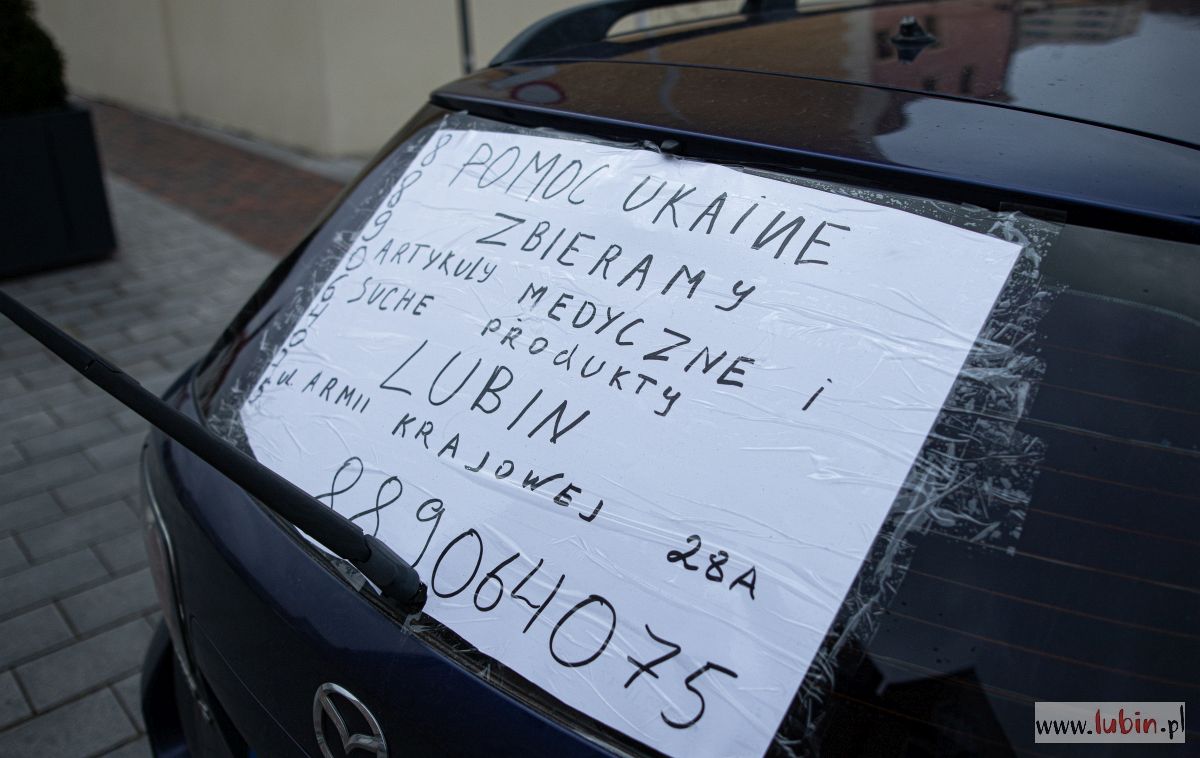 POMOC UKAINE
ZBIERAMY
ARTYKULY MEDYCZNE i
SUCHE PRODUKTY
LUBIN
ul. ARMII KRAJOWEJ 28A
889064075
889064075
www.lubin.pl